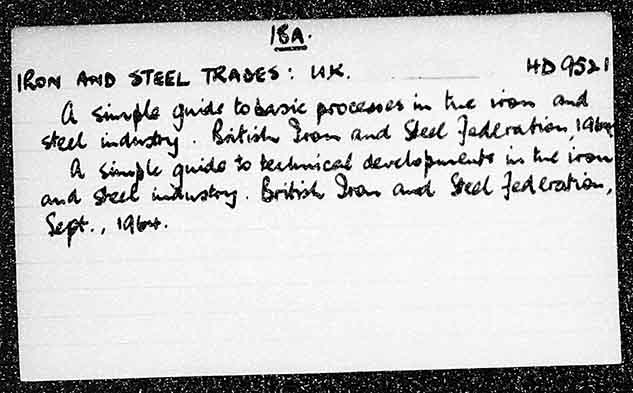 18A.
IRON AND STEEL TRADES: UK. HD 9521
A simple guide to basic processes in the iron and
steel industry. British Iron and Steel Federation, 1964.
A simple guide to technical developments in the iron
and steel industry. British Iron and Steel Federation,
Sept., 1964.